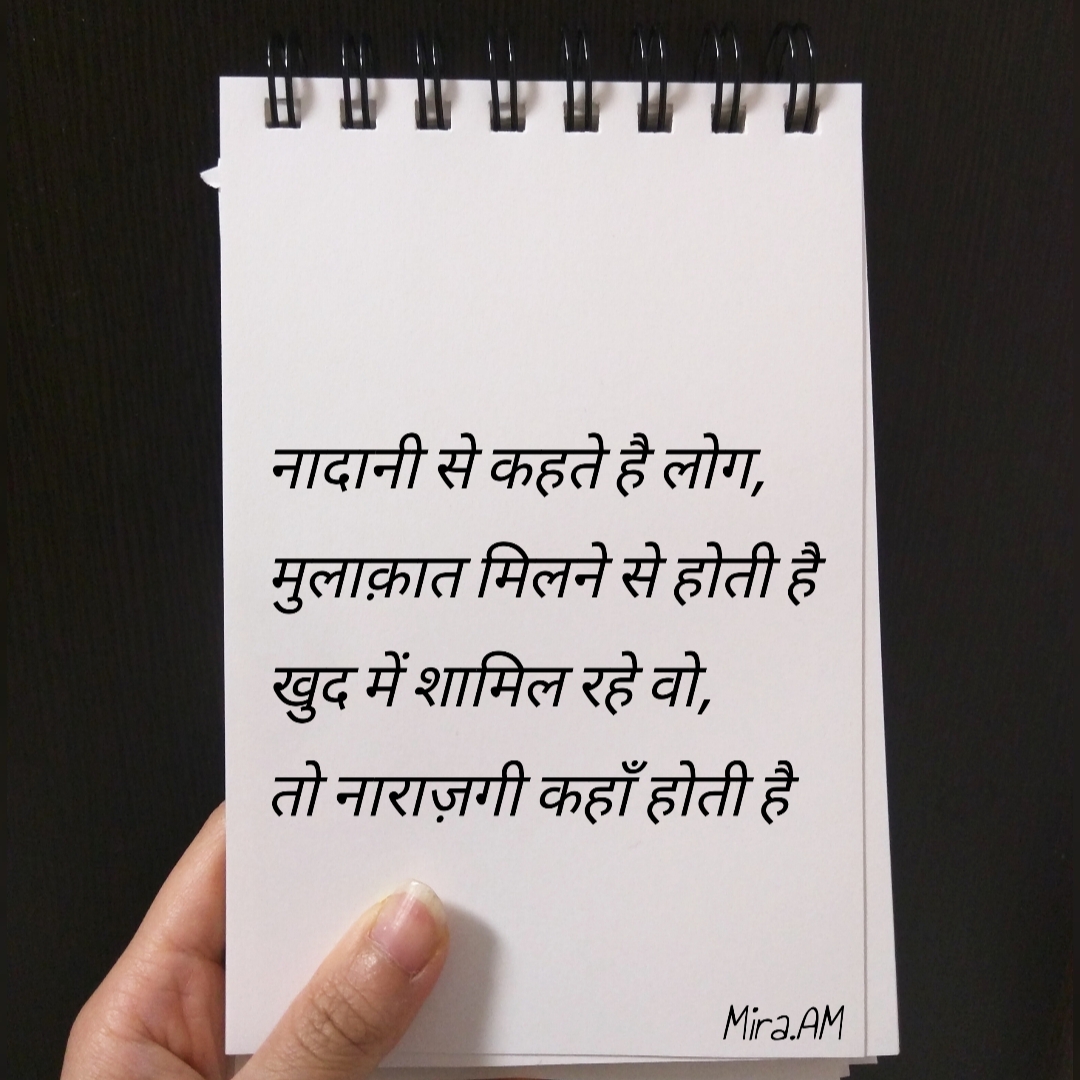 नादानी से कहते है लोग,
मुलाक़ात मिलने से होती है
खुद में शामिल रहे वो,
तो नाराज़गी कहाँ होती है
Mira.AM